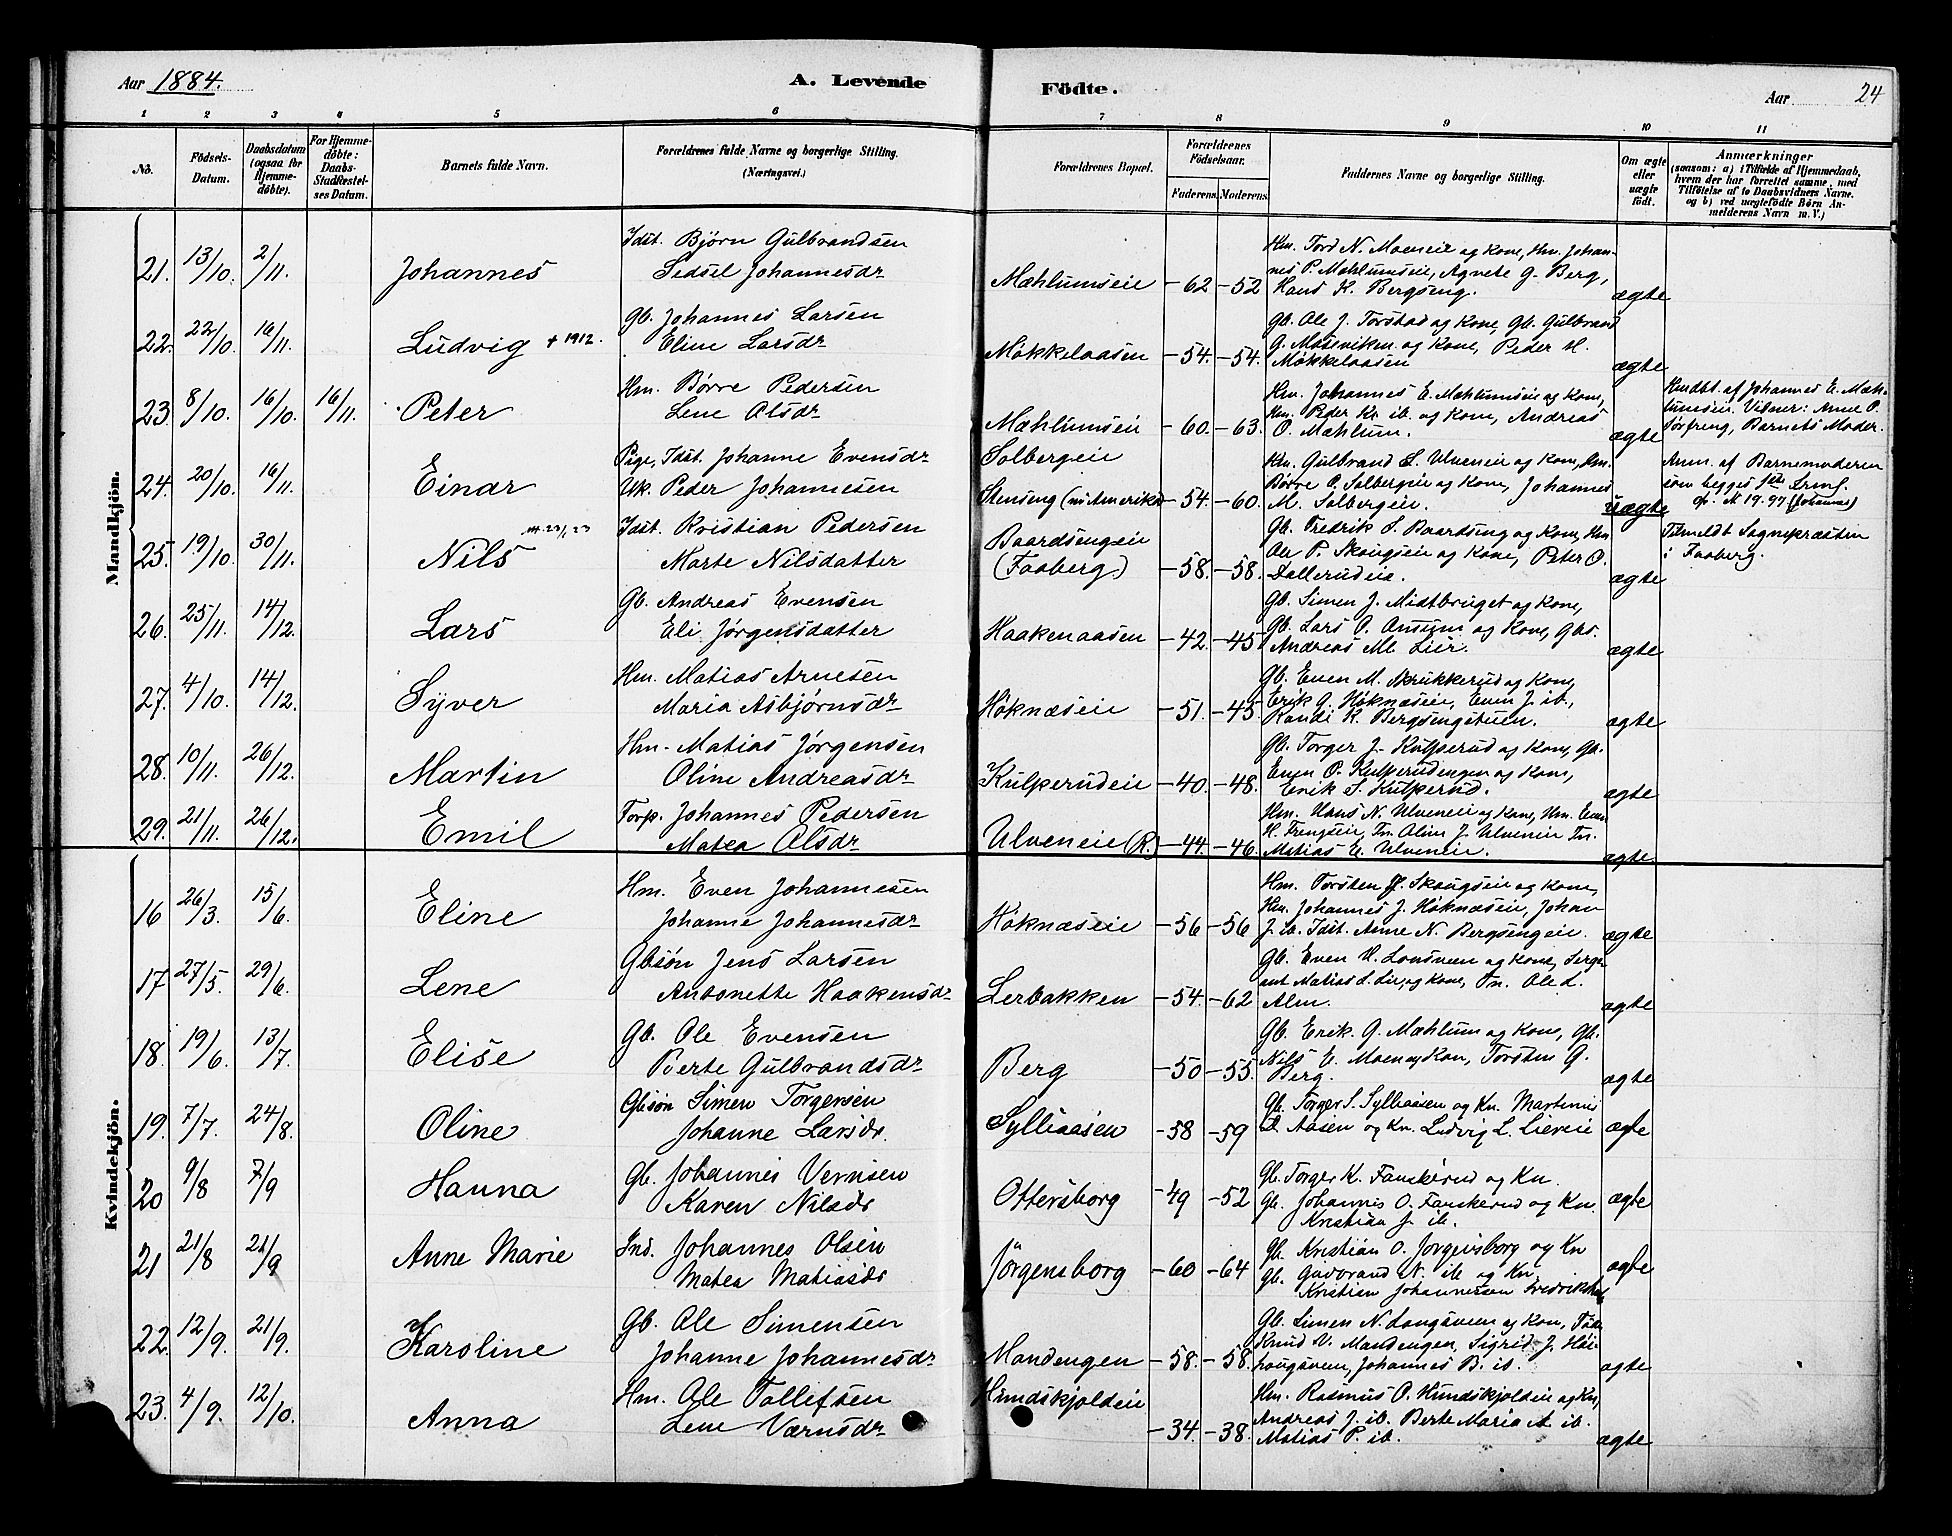 Aar 1884.
A. Levende Födte.
Aar 24
1 2 3 4 5 6 7 8 9 10 11
No.
Fødsels-Datum.
Daabsdatum (ogsaa for Hjemmedøbte).
For Hjemmedøbte: Daabs-Stadfæstelses Datum.
Barnets fulde Navn.
Forældrenes fulde Navne og borgerlige Stilling. (Næringsvei.)
Forældrenes Bopæl.
Forældrenes Fødselsaar.
Faderens. Moderens.
Faddernes Navne og borgerlige Stilling.
Om ægte eller uægte født.
Anmærkninger
(saasom: a) i Tilfælde af Hjemmedaab, hvem der har forrettet samme, med Tilføielse af to Daabsvidners Navne, og b) ved uægtefødte Børn Anmelderens Navn m. V.)
Mandkjön.
21. 13/10. 2/11. Johannes
Idst. Bjørn Gulbrandsen
Sidsel Johannesdr
Mæhlumseie -62 -52
Hm. Tord N. Moeneie og Kone, Hm. Johannes P. Mæhlumseie, Agnete G. Berg,
Hans K. Bergseng. ægte
22. 22/10. 16/11. Ludvig + 1912.
Gb. Johannes Larsen
Eline Larsdr
Møkkelaasen -54. -54.
Gb. Ole J. Torstad og Kone, Gb. Gulbrand
G. og Kone, Peder M.
Møkkelaasen ægte
23. 8/10. 16/10. 16/11. Peter
Hm. Børre Pedersen
Lene Olsdr
Mæhlumseie -60. -63.
Hm. Johannes E. Mæhlumseie og Kone,
Hm. Peder Kr. ib. og Kone, Andreas
O. Mæhlum. ægte
Hmdbt. af Johannes E. Mæhlumseie. Vidner: Anne O.
Barnets Moder.
24. 20/10. 16/11. Einar
Pige, Idst. Johanne Evensdr
Uk. Peder Johannesen
Solbergeie
Stenseng (nu i Amerika) -54. -60.
Hm. Gulbrand S. Ulveneie og Kone, Hm.
Børre O. Solbergeie og Kone, Johannes
M. Solbergeie. uægte
Anm. af Barnemoderen
som begges 1ste Lrml.
cfr. N 19. 97 (Johanne)
25. 19/10. 30/11. Nils
Idst. Kristian Pedersen
Marte Nilsdatter
Baardsengeie
(Faaberg) -58. -58.
Gb. Fredrik S. Baardseng og Kone, Hm
Ole P. Skougseie og Kone, Peter O.
Dallerudeie. ægte
Tilmeldt Sognepræsten
i Faaberg.
26. 25/11. 14/12. Lars
Gb. Andreas Evensen
Eli Jørgensdatter
Haakenaasen -42. -45
Gb. Simen J. Midtbruget og Kone,
Gb. Lars O. Onsum og Kone, Gbs.
Andreas M. Lier. ægte
27. 4/10. 14/12. Syver
Hm. Matias Arnesen
Maria Asbjørnsdr
Høknæseie -51. -45.
Gb. Even M. Skrukkerud og Kone,
Erik G. Høknæseie, Even J. ib.,
Randi K. Bergsengstuen. ægte
28. 10/11. 26/12. Martin
Hm. Matias Jørgensen
Oline Andreasdr
Kulperudeie -40. -48.
Gb. Torger J. Kulperud og Kone, Gb.
Even O. Kulperudengen og Kone,
Erik S. Kulperud. ægte
29. 21/11. 26/12. Emil
Forp. Johannes Pedersen
Matea Olsdr
Ulveneie (R.) -44. -46.
Hm. Hans N. Ulveneie og Kone, Hm. Even
H. Frengseie, Tn. Oline J. Ulveneie Tn.
Matias E. Ulveneie. ægte
Kvindekjön.
16 26/3. 15/6. Eline
Hm. Even Johannesen
Johanne Johannesdr
Høknæseie -56 -56
Hm. Torsten P. Skougseie og Kone,
Hm. Johannes J. Høknæseie, Johan
J. ib. Idst. Anne N. Bergsengeie. ægte
17 27/5. 29/6. Lene
Gbsøn Jens Larsen
Antonette Haakensdr
Lerbakken -54. -62
Gb. Even H. Lonsveen og Kone, Sergeant Matias L. Lie, og Kone, Tn. Ole L.
Alm. ægte
18. 19/6. 13/7. Elise
Gb. Ole Evensen
Berte Gulbrandsdr
Berg -50 -55.
Gb. Erik G. Mæhlum og Kone, Gb.
Nils E. Moen og Kon, Torsten G.
Berg. ægte
19. 7/7. 24/8. Oline
Gbsøn Simen Torgersen
Johanne Larsdr.
Sylliaasen -58 -59
Gb. Torger S. Sylliaasen og Kn. Martinus
L. Aasen og Kn. Ludvig L. Liereie ægte
20 9/8 7/9 Hanna
Gb. Johannes Vernsen
Karen Nilsdr
Ottersborg -49 -52
Gb. Torger K. Fauskerud og Kn.
Gb. Johannes O. Fauskerud og Kn.
Kristian J. ib. ægte
21 21/8 21/9 Anne Marie
Ind. Johannes Olsen
Matea Matiasdr
Jørgensborg -60 -64
Gb. Kristian O. Jørgensborg og Kn
Gb. Gudbrand N. ib og Kn.
Kristian Johannessen ægte
22. 12/9. 21/9. Karoline
Gb. Ole Simensen
Johanne Johannesdr
Mandengen -58. -58.
Gb. Simen N. Longsveen og Kon,
Knud V. Mandengen, Sigrid J.
Johannes B. ib. ægte
23. 4/9. 12/10. Anna
Hm. Ole Tollefsen
Lene Værnsdr
Hundskjoldeie -34. -38.
Hm. Rasmus O. Hundskjoldeie og Kn,
Andreas J. ib. Berte Maria A ib.
Matias P. ib. ægte